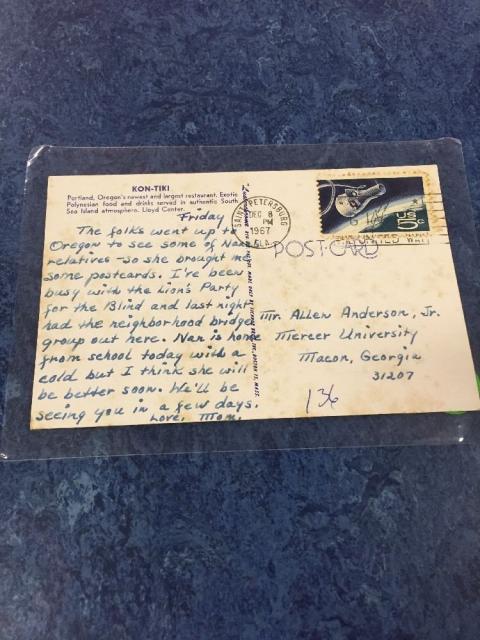 KON-TIKI
Portland, Oregon's newest and largest restaurant. Exotic
Polynesian food and drinks served in authentic South
Sea Island atmosphere. Lloyd Center.
Friday
The folks went up to
Oregon to see some of Nan's
relatives - so she brought me
some postcards. I've been
busy with the Lion's Party
for the Blind and last night
had the neighborhood bridge
group out here. Nan is home
from school today with a
cold but I think she will
be better soon. We'll be
seeing you in a few days.
Love, Mom.
SAINT PETERSBURG
DEC 8
PM
1967
FLA.
US
5c
POST CARD
UNITED WAY
Mr. Allen Anderson, Jr.
Mercer University
Macon, Georgia
31207
136